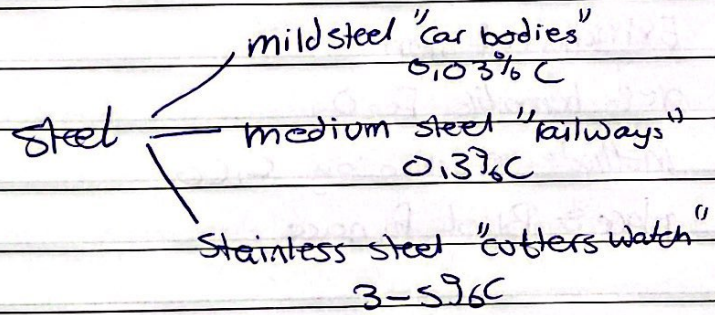 mild steel "car bodies"
0,03% C
Steel
medium steel "railways"
0,3% C
Stainless steel "cutters watch"
3-5% C